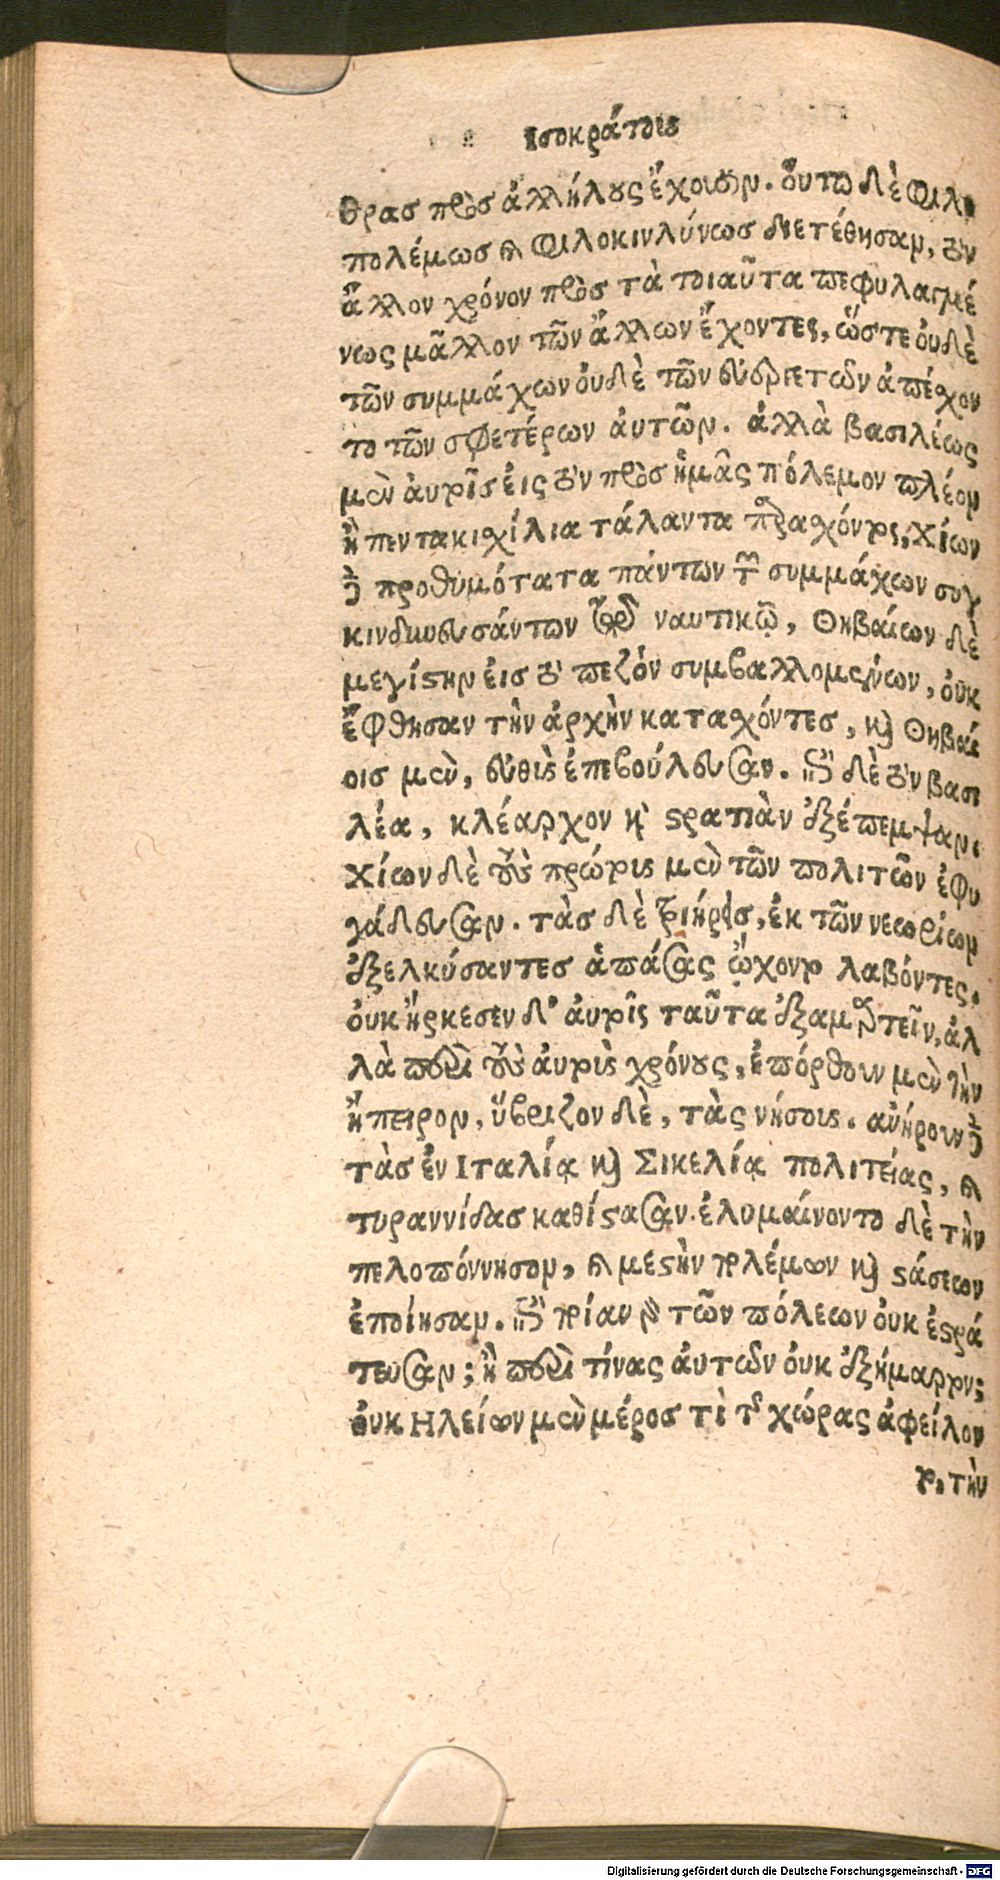 Ισοκράτους
θρας πρὸς ἀλλήλους ἔχουσιν. οὕτω δὲ φιλο
πολέμως καὶ φιλοκινδύνως διετέθησαν, τὸν
ἄλλον χρόνον πρὸς τὰ τοιαῦτα πεφυλαγμέ
νως μᾶλλον τῶν ἄλλων ἔχοντες, ὥστε οὐδὲ
τῶν συμμάχων οὐδὲ τῶν εὐεργετῶν ἀπέσχον
το τῶν σφετέρων αὐτῶν. ἀλλὰ βασιλέως
μὲν αὐτοῖς εἰς τὸν πρὸς ἡμᾶς πόλεμον πλέον
ἢ πεντακισχίλια τάλαντα παρασχόντος, Χίων
δὲ προθυμότατα πάντων τῶν συμμάχων συγ
κινδυνευσάντων τῷ ναυτικῷ, Θηβαίων δὲ
μεγίστην εἰς τὸ πεζὸν συμβαλλομένων, οὐκ
ἔφθησαν τὴν ἀρχὴν κατασχόντες, καὶ Θηβαί
οις μὲν, εὐθὺς ἐπεβούλευσαν. ἐπὶ δὲ τὸν βασι
λέα, κλέαρχον καὶ στρατιὰν ἐξέπεμψαν.
Χίων δὲ τοὺς πρώτους μὲν τῶν πολιτῶν ἐφυ
γάδευσαν. τὰς δὲ τριήρεις, ἐκ τῶν νεωρίων
ἐξελκύσαντες ἁπάσας ᾤχοντο λαβόντες.
οὐκ ἤρκεσεν δ' αὐτοῖς ταῦτα ἐξαμαρτεῖν, ἀλ
λὰ περὶ τοὺς αὐτοὺς χρόνους, ἐπόρθουν μὲν τὴν
ἤπειρον, ὕβριζον δὲ, τὰς νήσους. ἀνῄρουν δὲ
τὰς ἐν Ιταλίᾳ καὶ Σικελίᾳ πολιτείας, καὶ
τυραννίδας καθίστασαν. ἐλυμαίνοντο δὲ τὴν
πελοπόννησον, καὶ μεστὴν πολέμων καὶ στάσεων
ἐποίησαν. ἐπὶ ποίαν γὰρ τῶν πόλεων οὐκ ἐστρά
τευσαν; ἢ περὶ τίνας αὐτῶν οὐκ ἐξήμαρτον;
οὐκ Ηλείων μὲν μέρος τὶ τῆς χώρας ἀφείλον
το, τὴν
Digitalisierung gefördert durch die Deutsche Forschungsgemeinschaft - DFG